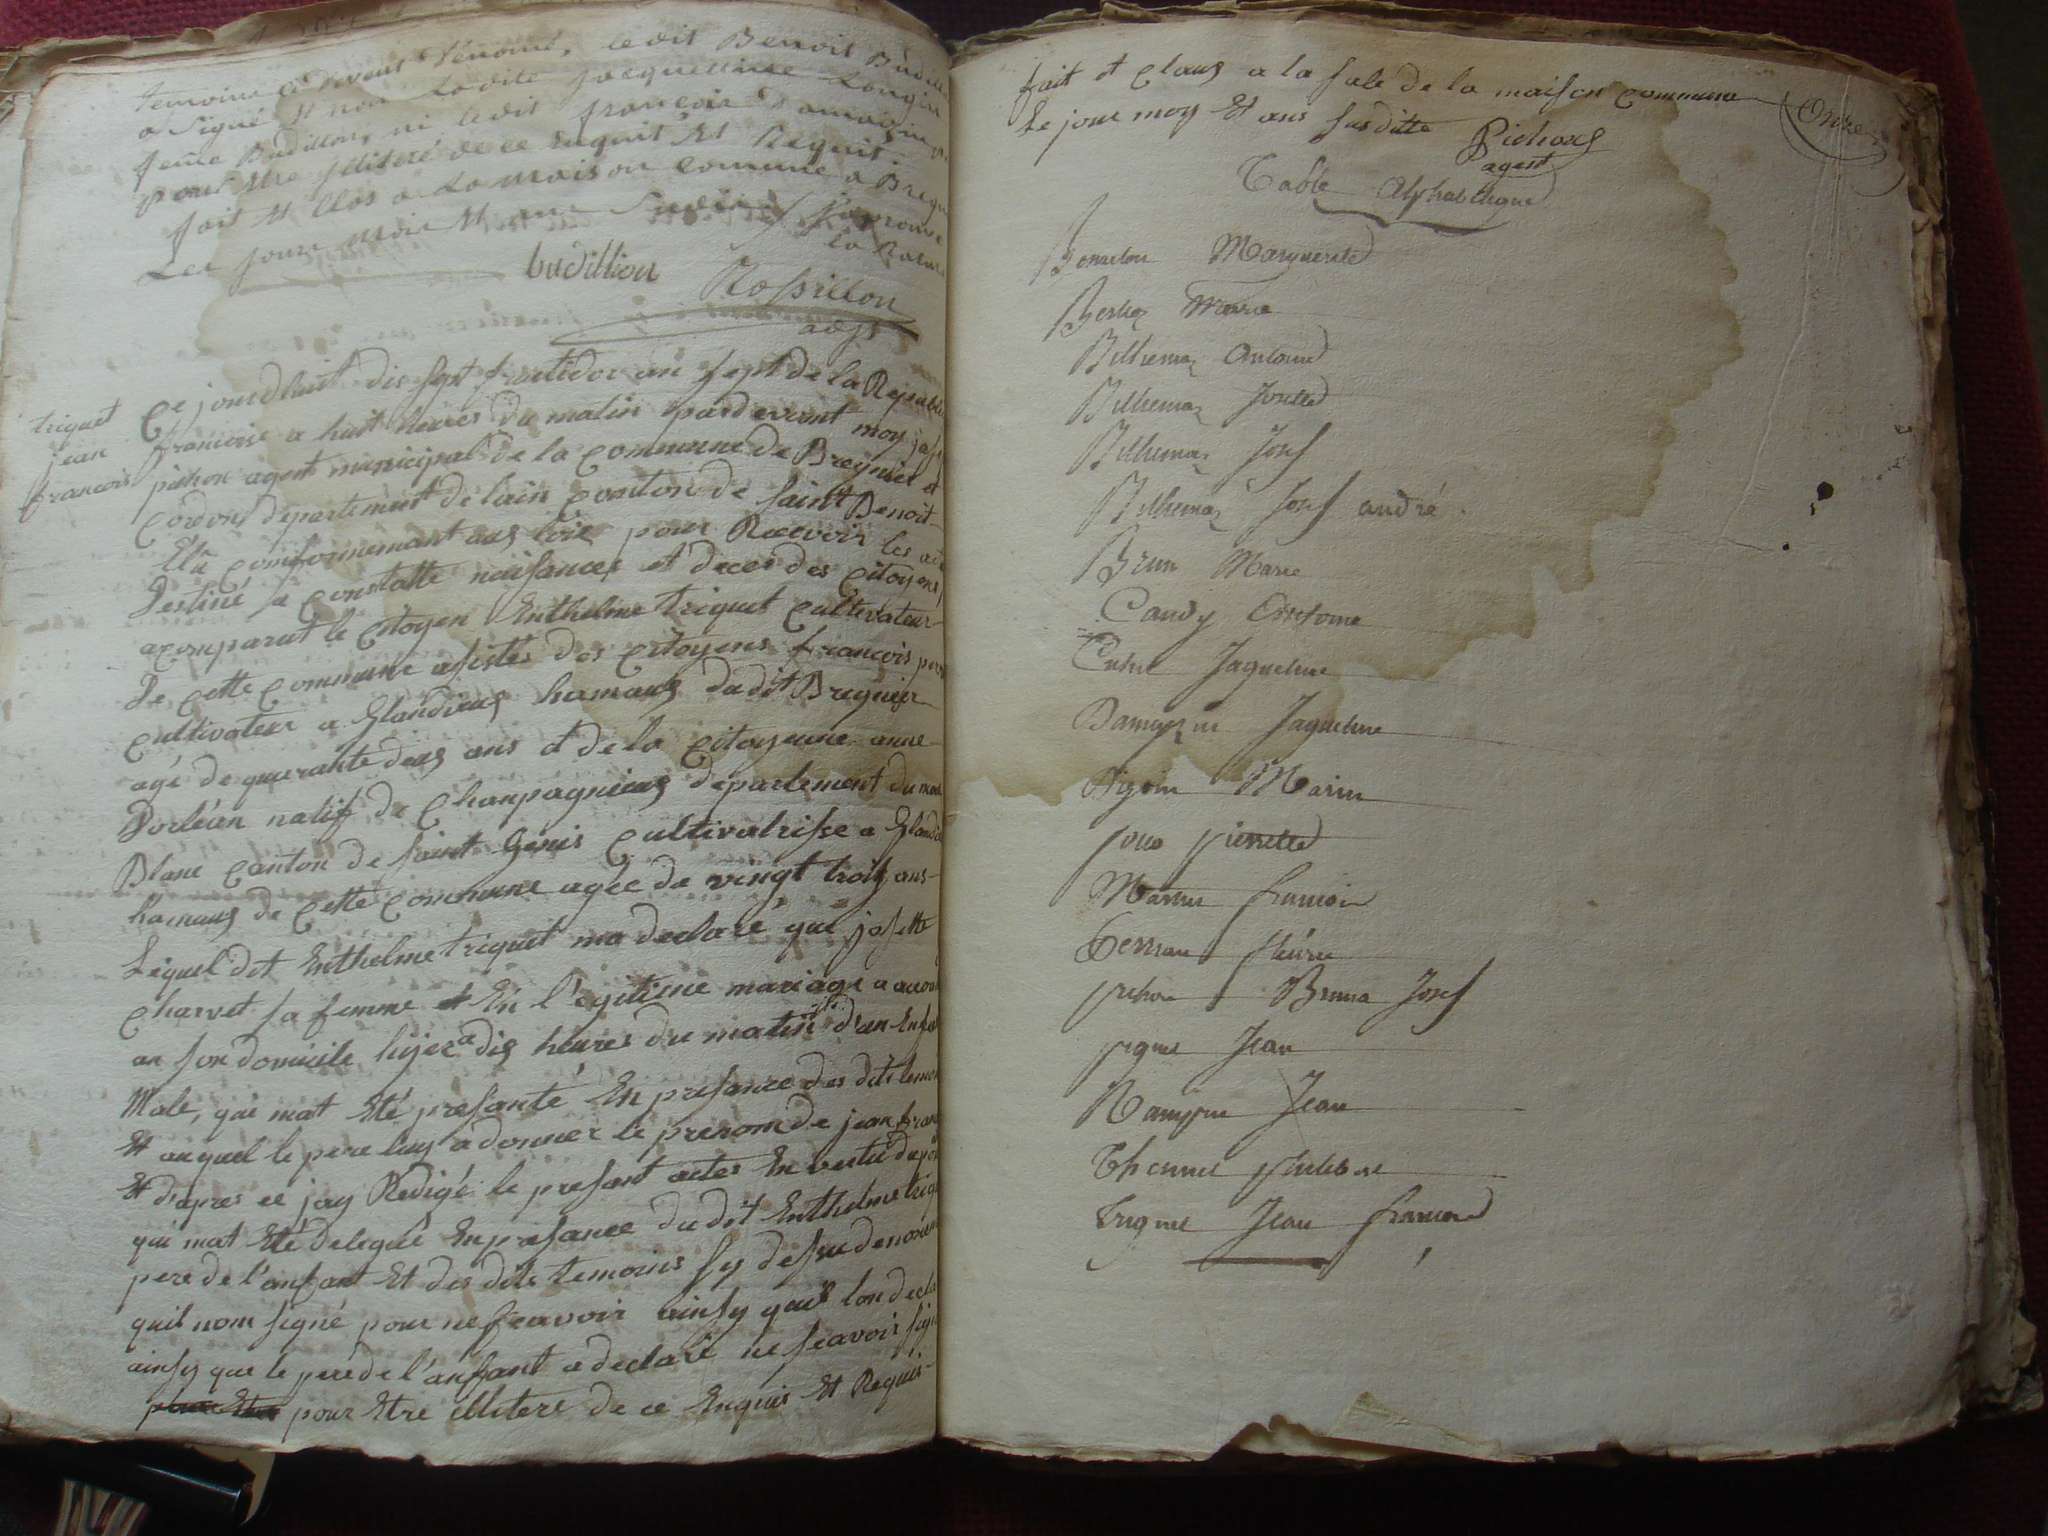 temoins Cy devent Venomé, ledit Benoit Budi
a Signé et non Ladite Jacquemine Longin
feme Budillon, ni ledit françois Damaizin
pour Etre illiteré de ce Enquit Et Requit.
fait Et Clos a La maison Comune a Bregn
Les jour mois Et ans Sudits
budillion Rossillon
adjt
triquet
jean
francois
Ce jourdhuit dis sept fructidor an sept de la Republi
francoise a huit heures du matin pardevant moy jose
pichon agent municipal de la Commune de Bregnier et
Cordon departement de lain Conton de saint Benoit
Elu Comformement aus lois pour Recevoir les act
Destiné a Constatté naisances et deces des Citoyens,
a Comparut le Citoyen Enthelme triquet Cultivateur
De Cette Commune asistés des Citoyens francois
Cultivateur a Glandieus hamaus dudit Bregnier
agé de quarante deus ans et de la Citoyenne anne
Dorléan natif de Chanpagnieus departement du mon
Blanc Canton de saint Genis Cultivatrisse a Glandi
hamaus de Cette Commune agée de vingt trois ans
Lequel dit Enthelme triquet ma declaré que josette
Charvet sa femme et En l'egitime mariage a acouc
an son domicile hyer a dis heures du matin d'un Enfa
Male, qui mat Eté presanté En presance des dits temoi
Et auquel le pere luy a donner le prenom de jean fran
Et d'apres ce jay Redigé le presant actes En vertu du po
qui mat Eté delegué En presance du dit Enthelme triqu
pere de l'anfant Et des dits temoins sy desu denomm
quit nom signé pour ne scavoir ainsy quil lon decla
ainsy que le pere de l'anfant a declaré ne scavoir sign
pour Etre illiteré de ce Enquis Et Requis
fait et Claus a la sale de la maison Commune
Le jour moy Et ans susditte Pichon
agent
Onze
Table Alphabetique
Marguerite
Marie
Billiemaz Antoine
Billiemaz Josette
Billiemaz Josf
Billiemaz Josf andré
Brun Marie
Candy Antoine
Jaqueline
Damaizin Jaqueline
Marie
Pierrette
Martin francois
Terran fleurie
pichon Bruna Josf
Jean
Ramijon Jean
Thevenet
Triquet Jean francois